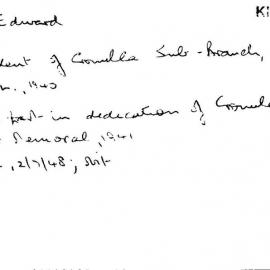 Edward
Ki
dent of Cronulla Sub-Branch,
1940
part in dedication of Cronulla
Memorial, 1941
, 2/7/48;